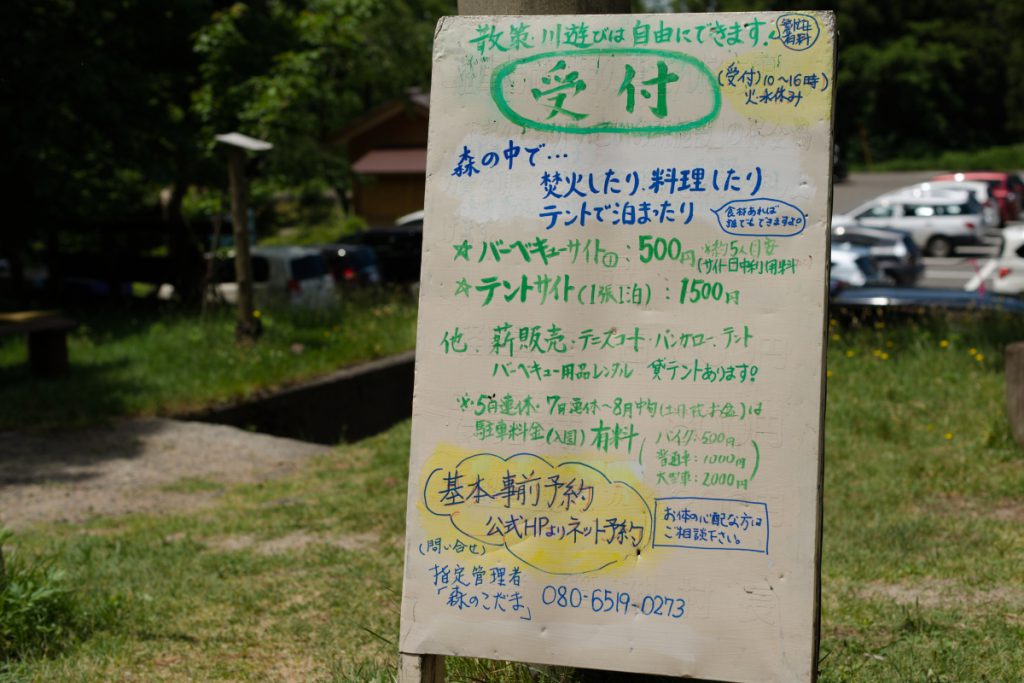 散策、川遊びは自由にできます。
繁忙日
有料
受付
(受付) 10〜16時)
火・水休み
森の中で…
焚火したり、料理したり
テントで泊まったり
食材あれば
誰でもできますよ。
☆ バーベキューサイト① : 500円 ※約5人目安
(サイト日中利用料
☆ テントサイト(1張1泊) : 1500円
他、薪販売・テニスコート・バンガロー、テント
バーベキュー用品レンタル 貸テントあります。
※5月連休・7月連休〜8月中旬(土日祝お盆)は
駐車料金(入園)有料
バイク:500円
普通車:1000円
大型車:2000円
基本事前予約
公式HPよりネット予約
お体の心配な方は
ご相談下さい。
(問い合せ)
指定管理者
「森のこだま」 080-6519-0273